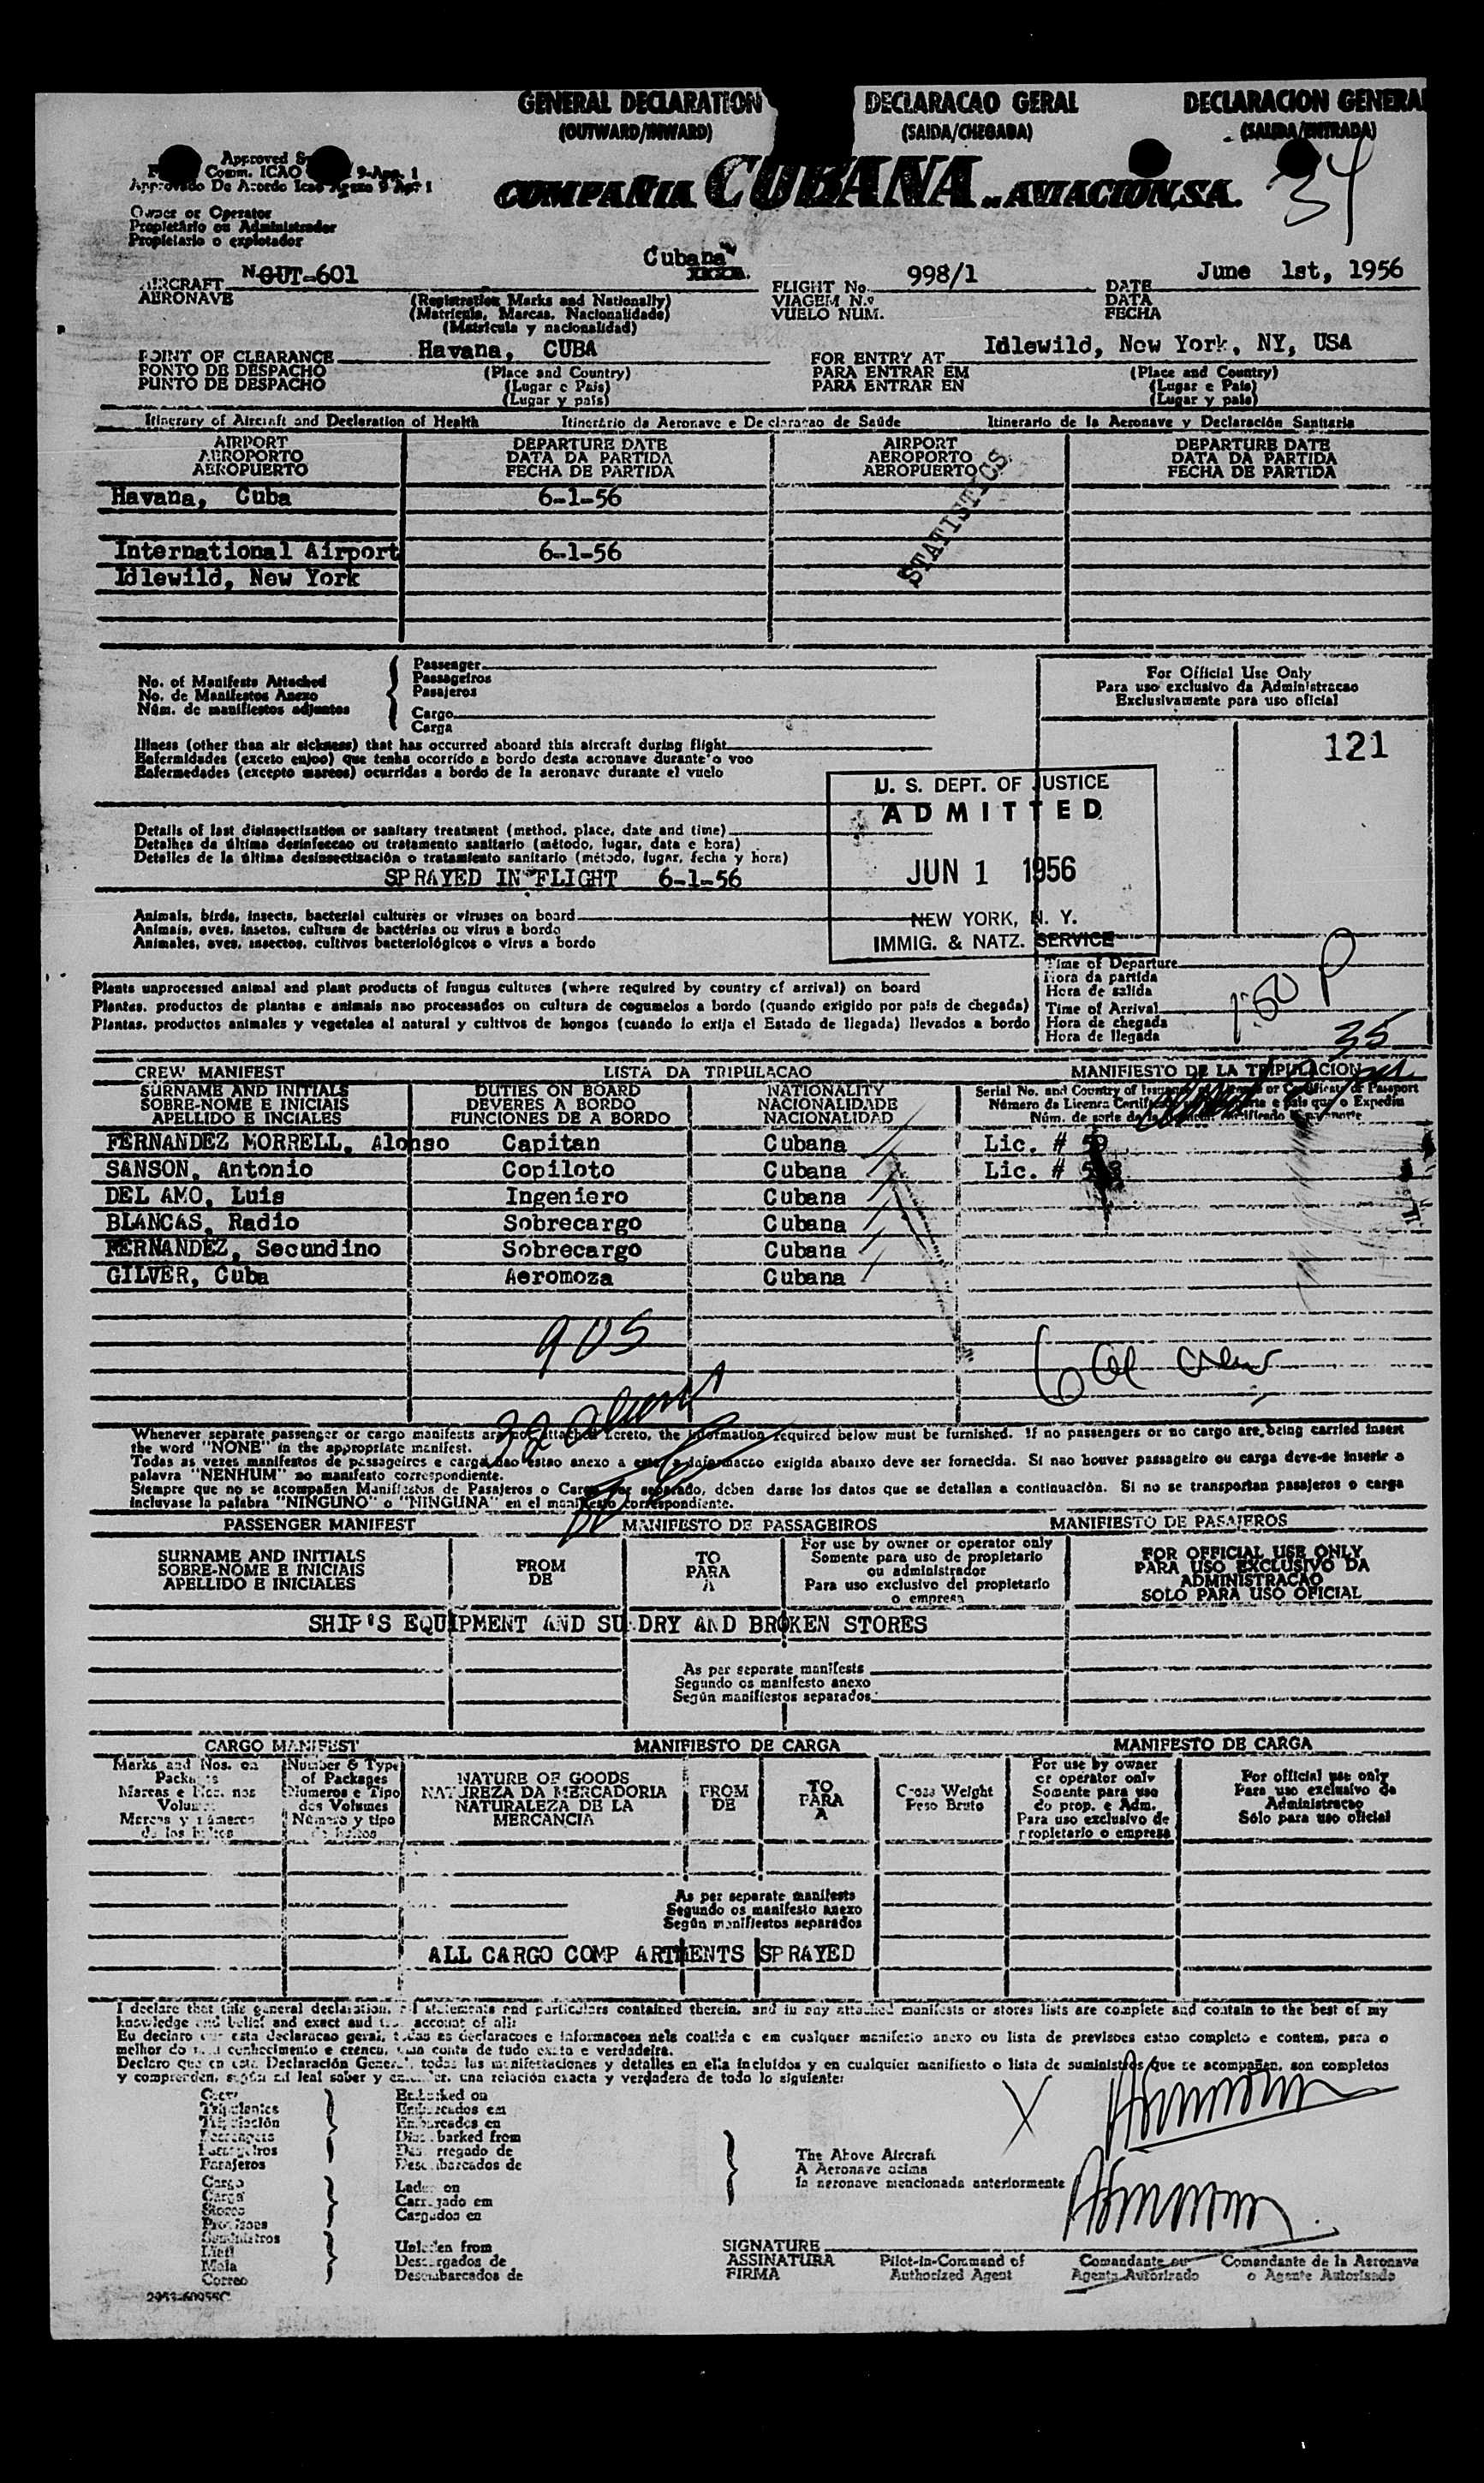 GENERAL DECLARATION
(OUTWARD/INWARD)
DECLARACAO GERAL
(SAIDA/CHEGADA)
DECLARACION GENERAL
(SALIDA/ENTRADA)
Approved
Comm. ICAO 9-App. 1
De Acordo Icao 9 Ap? 1
COMPAÑIA CUBANA DE AVIACION, S.A.
34
Owner or Operator
Propietário ou Administrador
Propietario o explotador
AIRCRAFT N-OUT-601 Cubana
AERONAVE
(Registration Marks and Nationally)
(Matrícula, Marcas, Nacionalidade)
(Matrícula y nacionalidad)
FLIGHT No. 998/1
VIAGEM N.º
VUELO NUM.
DATE June 1st, 1956
DATA
FECHA
POINT OF CLEARANCE Havana, CUBA
PONTO DE DESPACHO
PUNTO DE DESPACHO
(Place and Country)
(Lugar e Pais)
(Lugar y país)
FOR ENTRY AT Idlewild, New York, NY, USA
PARA ENTRAR EM
PARA ENTRAR EN
(Place and Country)
(Lugar e País)
(Lugar y país)
Itinerary of Aircraft and Declaration of Health Itinerário da Aeronave e Declaracao de Saúde Itinerario de la Aeronave y Declaración Sanitaria
AIRPORT DEPARTURE DATE AIRPORT DEPARTURE DATE
AEROPORTO DATA DA PARTIDA AEROPORTO DATA DA PARTIDA
AEROPUERTO FECHA DE PARTIDA AEROPUERTO FECHA DE PARTIDA
STATISTICS
Havana, Cuba 6-1-56
International Airport 6-1-56
Idlewild, New York
No. of Manifests Attached
No. de Manifestos Anexo
Núm. de manifiestos adjuntos
Passenger
Passageiros
Pasajeros
Cargo
Carga
For Official Use Only
Para uso exclusivo da Administracao
Exclusivamente para uso oficial
121
Illness (other than air sickness) that has occurred aboard this aircraft during flight
Enfermidades (exceto enjoo) que tenha ocorrido a bordo desta aeronave durante o voo
Enfermedades (excepto mareos) ocurridas a bordo de la aeronave durante el vuelo
U. S. DEPT. OF JUSTICE
ADMITTED
JUN 1 1956
NEW YORK, N. Y.
IMMIG. & NATZ. SERVICE
Details of last disinsectization or sanitary treatment (method, place, date and time)
Detalhes da última desinfeccao ou tratamento sanitario (método, lugar, data e hora)
Detalles de la última desinsectización o tratamiento sanitario (método, lugar, fecha y hora)
SPRAYED IN FLIGHT 6-1-56
Animals, birds, insects, bacterial cultures or viruses on board
Animais, aves, insetos, cultura de bactérias ou virus a bordo
Animales, aves, insectos, cultivos bacteriológicos o virus a bordo
Plants unprocessed animal and plant products of fungus cultures (where required by country of arrival) on board
Plantas, productos de plantas e animais nao processados on cultura de cogumelos a bordo (quando exigido por país de chegada)
Plantas, productos animales y vegetales al natural y cultivos de hongos (cuando lo exija el Estado de llegada) llevados a bordo
Time of Departure
Hora da partida
Hora de salida
Time of Arrival
Hora de chegada
Hora de llegada
35
CREW MANIFEST LISTA DA TRIPULACAO MANIFIESTO DE LA TRIPULACION
SURNAME AND INITIALS DUTIES ON BOARD NATIONALITY
SOBRE-NOME E INICIAIS DEVERES A BORDO NACIONALIDADE
APELLIDO E INCIALES FUNCIONES DE A BORDO NACIONALIDAD
FERNANDEZ MORRELL, Alonso Capitan Cubana Lic. #
SANSON, Antonio Copiloto Cubana Lic. #
DEL AMO, Luis Ingeniero Cubana
BLANCAS, Radio Sobrecargo Cubana
FERNANDEZ, Secundino Sobrecargo Cubana
GILVER, Cuba Aeromoza Cubana
905
6 crew
32
Whenever separate passenger or cargo manifests are not attached hereto, the information required below must be furnished. If no passengers or no cargo are being carried insert
the word "NONE" in the appropriate manifest.
Todas as vezes manifestos de passageiros e carga nao estao anexo a este, a informacao exigida abaixo deve ser fornecida. Si nao houver passageiro ou carga deve-se inserir a
palavra "NENHUM" no manifesto correspondiente.
Siempre que no se acompañen Manifiestos de Pasajeros o Carga por separado, deben darse los datos que se detallan a continuación. Si no se transportan pasajeros o carga
incluyase la palabra "NINGUNO" o "NINGUNA" en el manifiesto correspondiente.
PASSENGER MANIFEST MANIFESTO DE PASSAGEIROS MANIFIESTO DE PASAJEROS
SURNAME AND INITIALS
SOBRE-NOME E INICIAIS
APELLIDO E INICIALES
FROM
DE
TO
PARA
A
For use by owner or operator only
Somente para uso de propietario
ou administrador
Para uso exclusivo del propietario
o empresa
FOR OFFICIAL USE ONLY
PARA USO EXCLUSIVO DA
ADMINISTRACAO
SOLO PARA USO OFICIAL
SHIP'S EQUIPMENT AND SUNDRY AND BROKEN STORES
As per separate manifests
Segundo os manifesto anexo
Según manifiestos separados
CARGO MANIFEST MANIFIESTO DE CARGA MANIFESTO DE CARGA
Marks and Nos. on
Packages
Marcas e Nos. nos
Volumes
Marcas y números
de los bultos
Number & Type
of Packages
Números e Tipo
dos Volumes
Número y tipo
de bultos
NATURE OF GOODS
NATUREZA DA MERCADORIA
NATURALEZA DE LA
MERCANCIA
FROM
DE
TO
PARA
A
Gross Weight
Peso Bruto
For use by owner
or operator only
Somente para uso
do prop. e Adm.
Para uso exclusivo de
propietario o empresa
For official use only
Para uso exclusivo da
Administracao
Sólo para uso oficial
As per separate manifests
Segundo os manifesto anexo
Según manifiestos separados
ALL CARGO COMP ARTMENTS SPRAYED
I declare that this general declaration, all statements and particulars contained therein, and in any attached manifests or stores lists are complete and contain to the best of my
knowledge and belief and exact aud true account of all:
Eu declaro que esta declaracao geral, todas as declaracoes e informacoes nela contida e em cualquer manifesto anexo ou lista de previsoes estao completo e contem, para o
melhor do meu conhecimento e crenca, una conta de tudo exata e verdadeira.
Declaro que en esta Declaración General, todas las manifestaciones y detalles en ella incluídos y en cualquier manifiesto o lista de suministros que se acompañen, son completos
y comprenden, según mi leal saber y entender, una relación exacta y verdadera de todo lo siguiente:
Crew
Tripulantes
Tripulación
Passengers
Passageiros
Pasajeros
Embarked on
Embarcados em
Embarcados en
Disembarked from
Desembarcados de
Cargo
Carga
Stores
Provisoes
Suministros
Mala
Correo
Laden on
Carregado em
Cargados en
Unladen from
Descargados de
Desembarcados de
The Above Aircraft
A Aeronave acima
la aeronave mencionada anteriormente
X
SIGNATURE
ASSINATURA
FIRMA
Pilot-in-Command of
Authorized Agent
Comandante ou
Agente Autorizado
Comandante de la Aeronave
o Agente Autorisado